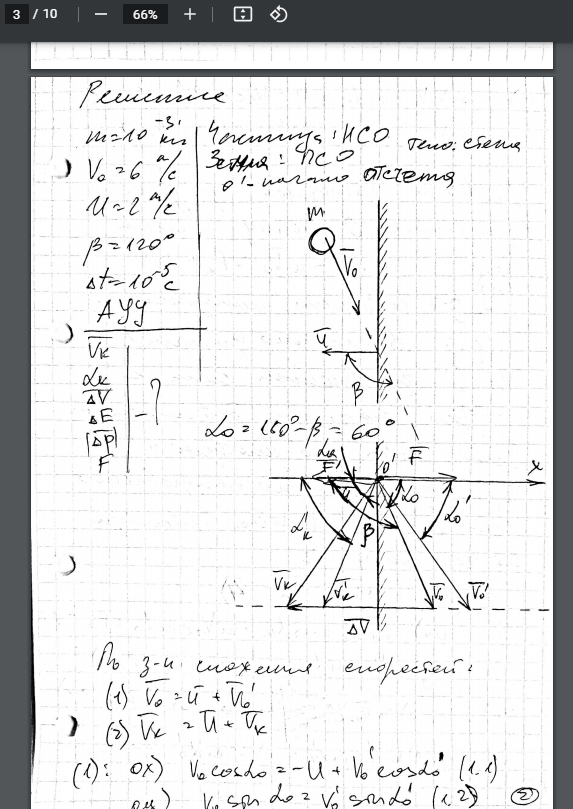 3 / 10
66%
Решение
m=10⁻³ кг
V₀=6 м/с
U=2 м/с
β=120°
Δt=10⁻⁵ с
АУУ
V̅к
αк
Δ̅V̅
ΔE
|Δ̅p̅|
F
- ?
Частица: ИСО
тело: стена
Земля: ПСО
0'-начало отсчета
m
V̅₀
u̅
β
α₀ = 180° - β = 60°
F̅
αк
F̅'
0'
x
u̅
α₀
α'к
β
α₀'
V̅к
V̅'к
V̅₀
V̅₀'
Δ̅V̅
По з-н сложения скоростей:
(1) V̅₀ = u̅ + V̅₀'
(2) V̅к = u̅ + V̅к
(1): ох) V₀cosα₀ = -U + V₀'cosα₀' (1.1)
V₀ sinα₀ = V₀' sinα₀' (1.2)
2